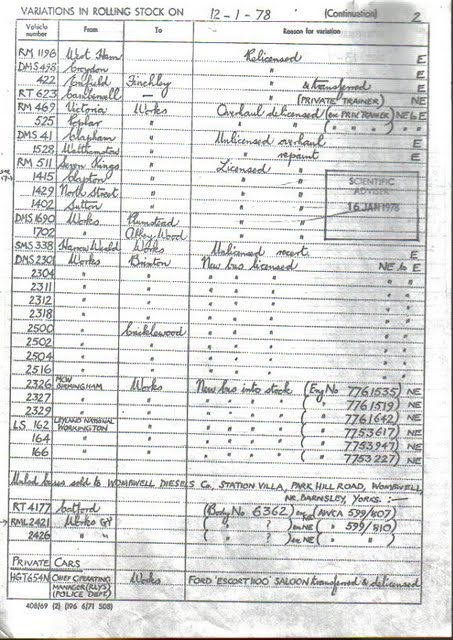 VARIATIONS IN ROLLING STOCK ON 12-1-78 (Continuation) 2
Vehicle number From To Reason for variation
RM 1196 West Ham Relicensed E
DMS 498 Croydon " E
422 Enfield Finchley " & transferred E
RT 623 Camberwell — " (PRIVATE TRAINER) NE
RM 469 Victoria Works Overhaul delicensed (on PRIV TRAINER) NE to E
525 Poplar " " " ( " " " ) "
DMS 41 Clapham " Unlicensed overhaul E
1528 Walthamstow " " repaint E
RM 511 Seven Kings " Licensed " E
1415 Clapton " " "
1429 North Street " " "
1402 Sutton " " "
SCIENTIFIC ADVISER
16 JAN 1978
DMS 1690 Works Plumstead " "
1702 " Abbey Wood " "
SMS 338 Harrow Weald Works Unlicensed recert. E
DMS 2301 Works Brixton New bus licensed NE to E
2304 " " " " " " " "
2311 " " " " " " " "
2312 " " " " " " " "
2318 " " " " " " " "
2500 " Cricklewood " " " " " "
2502 " " " " " " " "
2504 " " " " " " " "
2516 " " " " " " " "
2326 MCW BIRMINGHAM Works New bus into stock (Eng No 7761535) NE
2327 " " " " " " ( " " 7761519) NE
2329 " " " " " " ( " " 7761642) NE
LS 162 LEYLAND NATIONAL WORKINGTON " " " " " ( " " 7753617) NE
164 " " " " " " ( " " 7753947) NE
166 " " " " " " ( " " 7753227) NE
buses sold to WOMBWELL DIESELS Co, STATION VILLA, PARK HILL ROAD, WOMBWELL,
NR. BARNSLEY, YORKS. :—
RT 4177 Catford (Body No 6362) ex NE (AVCA 599/807)
RML 2421 Works " ? ) ex NE ( " 599/810)
2426 " " ( " ? ) ex NE ( " )
PRIVATE CARS
HGT 654N CHIEF OPERATING MANAGER (RLYS) (POLICE DEPT) Works FORD 'ESCORT 1100' SALOON transferred & delicensed
408/69 (2) (196 6/71 508)